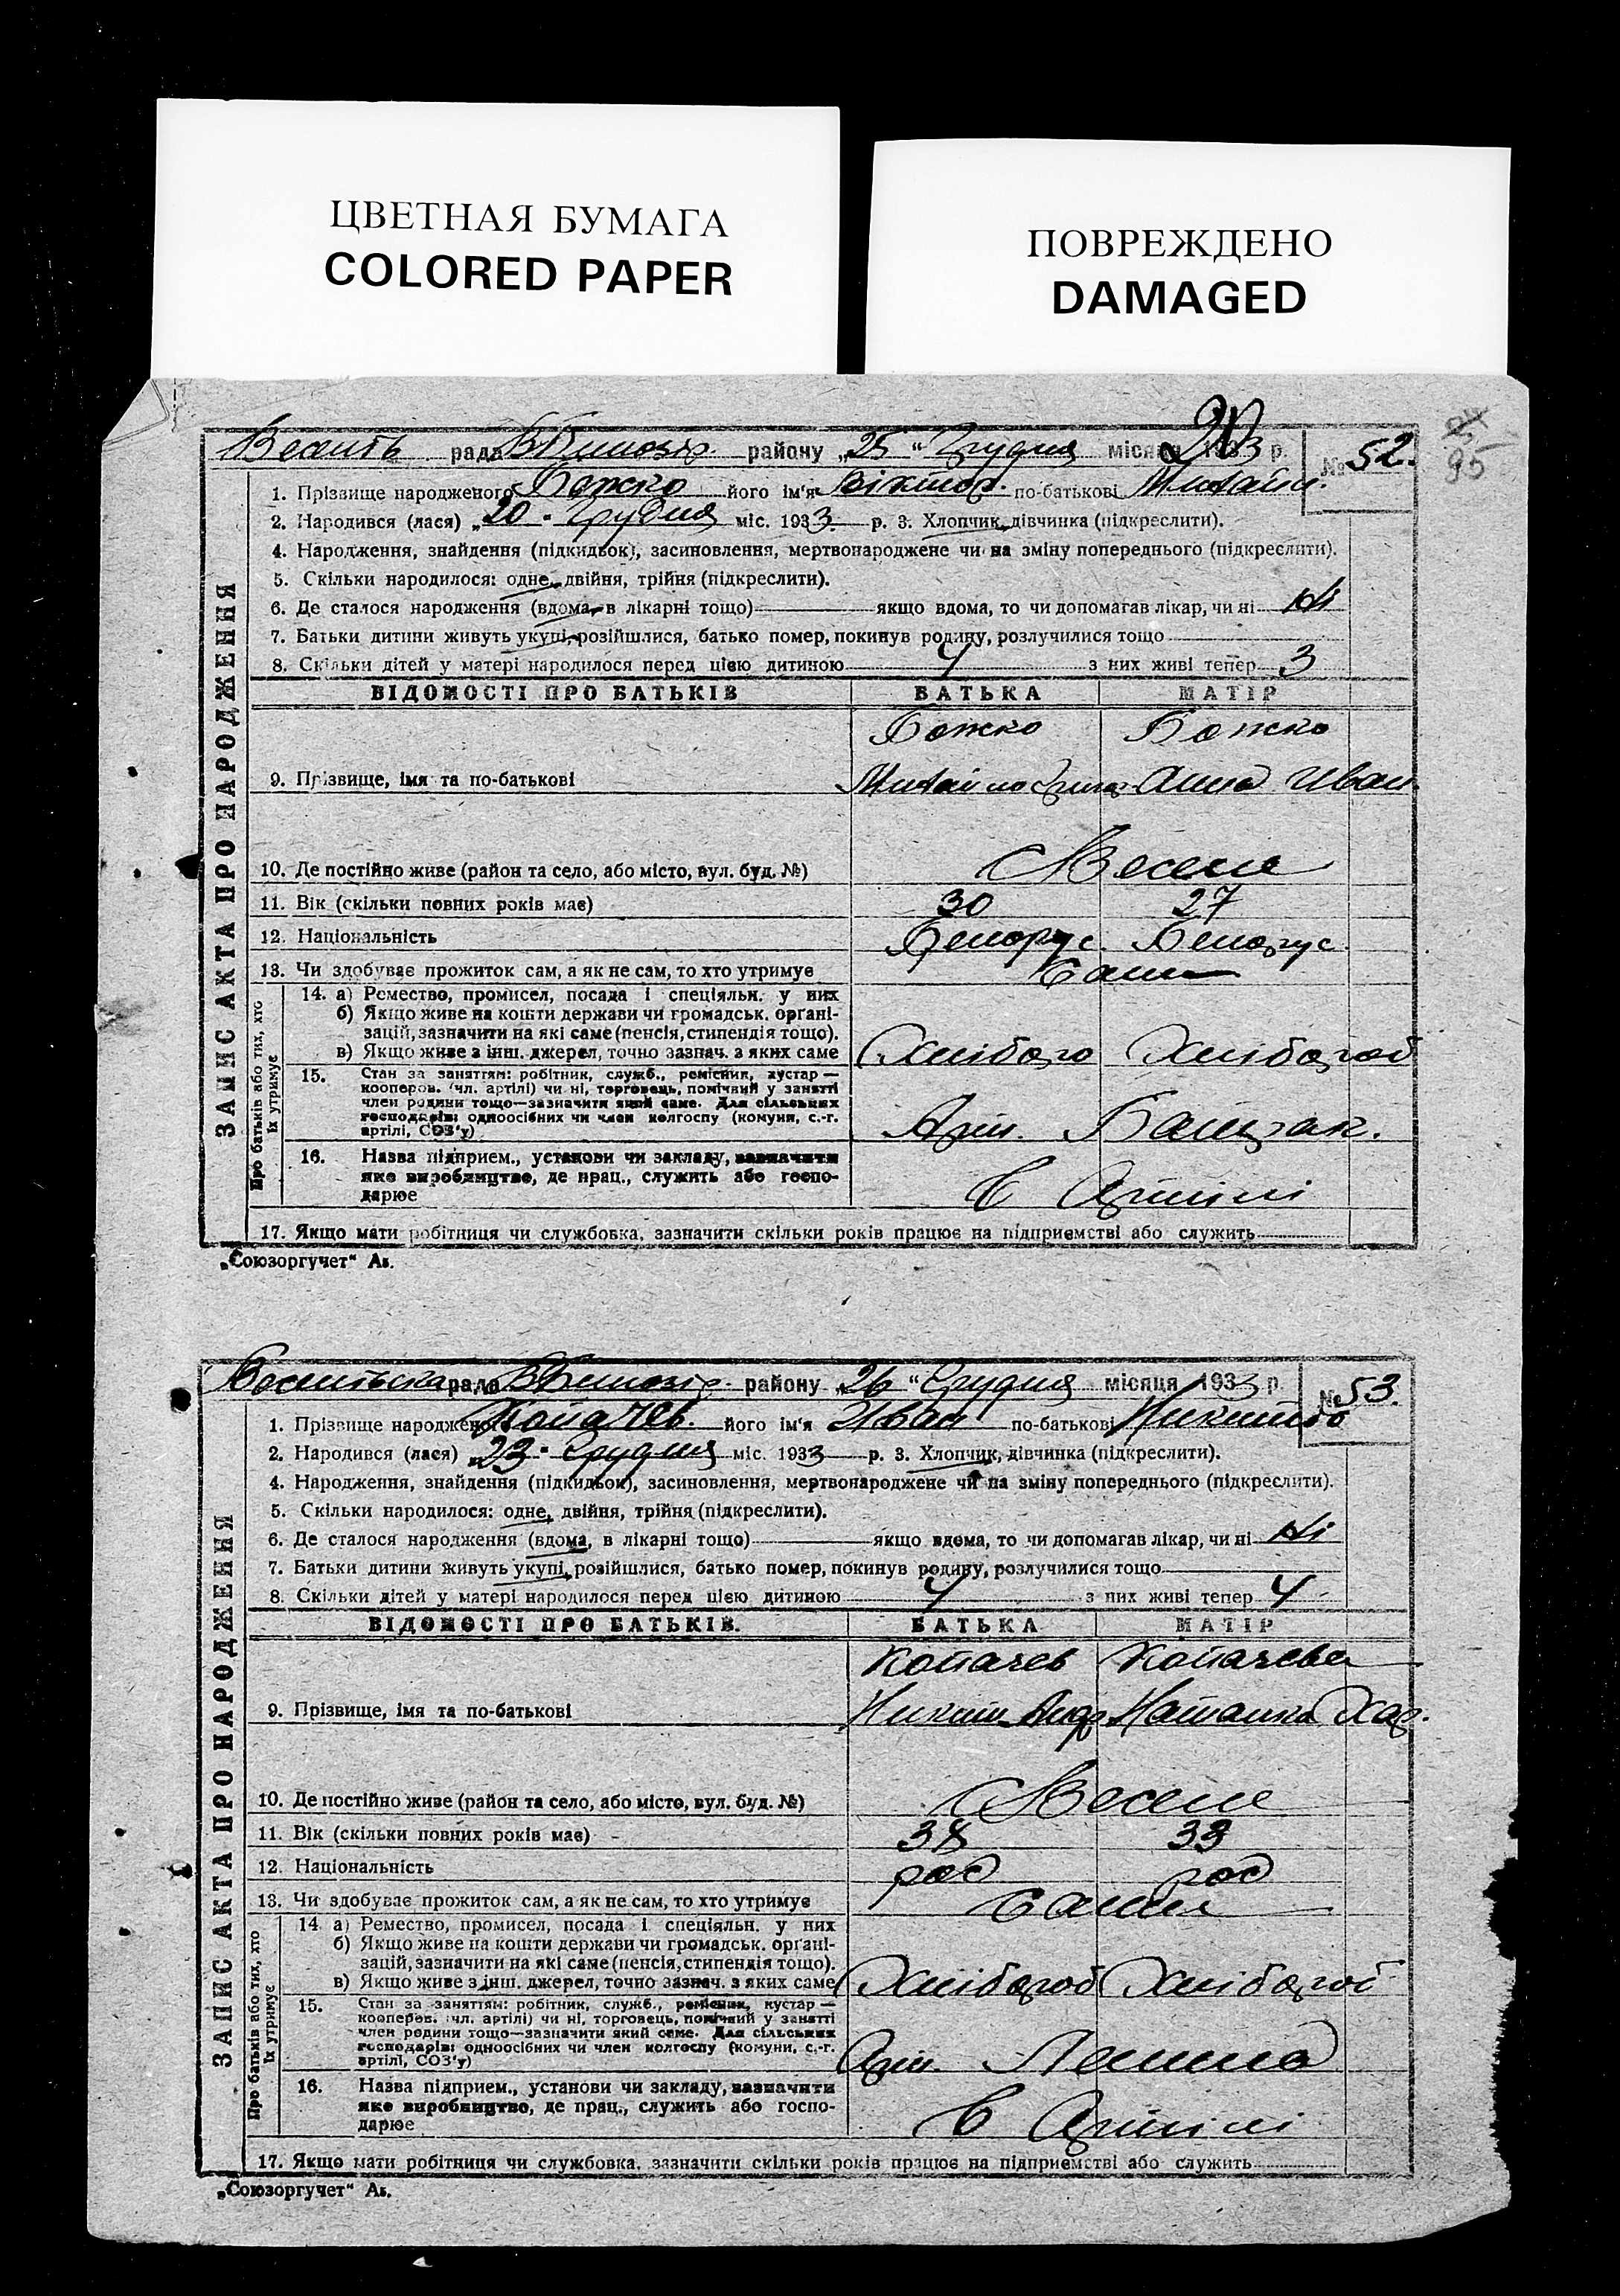 ЦВЕТНАЯ БУМАГА
COLORED PAPER
ПОВРЕЖДЕНО
DAMAGED
95
рада району „25 “ Грудня місяця 1933 р. № 52.
1. Прізвище народженого Божко його ім'я Віктор. по-батькові Михайл.
2. Народився (лася) „20 " Грудня міс. 1933 р. 3. Хлопчик, дівчинка (підкреслити).
4. Народження, знайдення (підкидьок), засиновлення, мертвонароджене чи на зміну попереднього (підкреслити).
5. Скільки народилося: одне, двійня, трійня (підкреслити).
6. Де сталося народження (вдома, в лікарні тощо) якщо вдома, то чи допомагав лікар, чи ні Ні
7. Батьки дитини живуть укупі, розійшлися, батько помер, покинув родину, розлучилися тощо
8. Скільки дітей у матері народилося перед цією дитиною 4 з них живі тепер 3
ВІДОМОСТІ ПРО БАТЬКІВ БАТЬКА МАТІР
Божко Божко
9. Прізвище, імя та по-батькові Михайло Анна Иван
10. Де постійно живе (район та село, або місто, вул. буд. №) с Веселе
11. Вік (скільки повних років має) 30 27
12. Національність Белорус. Белорус.
13. Чи здобуває прожиток сам, а як не сам, то хто утримує Сами
ЗАПИС АКТА ПРО НАРОДЖЕННЯ
Про батьків або тих, хто їх утримує
14. а) Ремество, промисел, посада і спеціяльн. у них
б) Якщо живе на кошти держави чи громадськ. органі-
зацій, зазначити на які саме (пенсія, стипендія тощо).
в) Якщо живе з інш. джерел, точно зазнач. з яких саме Хлібороб Хлібороб
15. Стан за заняттям: робітник, служб., ремісник, кустар —
кооперов. (чл. артілі) чи ні, торговець, помічний у занятті
член родини тощо—зазначити який саме. Для сільських
господарів: одноосібних чи член колгоспу (комуни, с.-г.
артілі, СОЗ'у) Арт. Батрак.
16. Назва підприєм., установи чи закладу, зазначити
яке виробництво, де прац., служить або госпо-
дарює в Артілі
17. Якщо мати робітниця чи службовка, зазначити скільки років працює на підприємстві або служить
„Союзоргучет“ Аз.
рада району „26 “ Грудня місяця 1933 р. № 53.
1. Прізвище народженого Копачев. його ім'я Иван по-батькові Никитов
2. Народився (лася) „23 " Грудня міс. 1933 р. 3. Хлопчик, дівчинка (підкреслити).
4. Народження, знайдення (підкидьок), засиновлення, мертвонароджене чи на зміну попереднього (підкреслити).
5. Скільки народилося: одне, двійня, трійня (підкреслити).
6. Де сталося народження (вдома, в лікарні тощо) якщо вдома, то чи допомагав лікар, чи ні Ні
7. Батьки дитини живуть укупі, розійшлися, батько помер, покинув родину, розлучилися тощо
8. Скільки дітей у матері народилося перед цією дитиною 4 з них живі тепер 4
ВІДОМОСТІ ПРО БАТЬКІВ. БАТЬКА МАТІР
Копачев Копачева
9. Прізвище, імя та по-батькові Никит. Андр Наталка Хар.
10. Де постійно живе (район та село, або місто, вул. буд. №) с Веселе
11. Вік (скільки повних років має) 38 33
12. Національність рос рос
13. Чи здобуває прожиток сам, а як не сам, то хто утримує Сами
ЗАПИС АКТА ПРО НАРОДЖЕННЯ
Про батьків або тих, хто їх утримує
14 а) Ремество, промисел, посада і спеціяльн. у них
б) Якщо живе на кошти держави чи громадськ. органі-
зацій, зазначити на які саме (пенсія, стипендія тощо).
в) Якщо живе з інш. джерел, точно зазнач. з яких саме Хлібороб Хлібороб
15. Стан за заняттям: робітник, служб., ремісник, кустар —
кооперов. (чл. артілі) чи ні, торговець, помічний у занятті
член родини тощо—зазначити який саме. Для сільських
господарів: одноосібних чи член колгоспу (комуни, с.-г.
артілі, СОЗ'у) Арт. Ленина
16. Назва підприєм., установи чи закладу, зазначити
яке виробництво, де прац., служить або госпо-
дарює в Артілі
17. Якщо мати робітниця чи службовка, зазначити скільки років працює на підприємстві або служить
„Союзоргучет“ Аз.